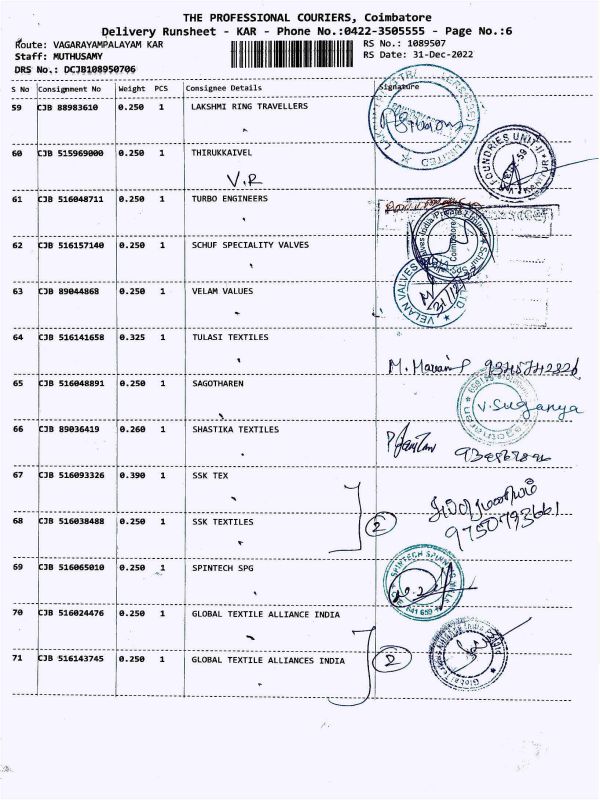 THE PROFESSIONAL COURIERS, Coimbatore
Delivery Runsheet - KAR - Phone No.:0422-3505555 - Page No.:6
Route: VAGARAYAMPALAYAM KAR
RS No.: 1089507
Staff: MUTHUSAMY
RS Date: 31-Dec-2022
DRS No.: DCJB108950706
S No Consignment No Weight PCS Consignee Details Signature
59 CJB 88983610 0.250 1 LAKSHMI RING TRAVELLERS
60 CJB 515969000 0.250 1 THIRUKKAIVEL
V.R
FOUNDRIES UNIT-II
61 CJB 516048711 0.250 1 TURBO ENGINEERS
62 CJB 516157140 0.250 1 SCHUF SPECIALITY VALVES
Coimbatore
63 CJB 89044868 0.250 1 VELAM VALUES
VELAN VALVES
31/12
64 CJB 516141658 0.325 1 TULASI TEXTILES
65 CJB 516048891 0.250 1 SAGOTHAREN
V.Suganya
66 CJB 89036419 0.260 1 SHASTIKA TEXTILES
67 CJB 516093326 0.390 1 SSK TEX
9750793661
68 CJB 516038488 0.250 1 SSK TEXTILES
2
69 CJB 516065010 0.250 1 SPINTECH SPG
SPINTECH SPINNING MILLS
641 659
70 CJB 516024476 0.250 1 GLOBAL TEXTILE ALLIANCE INDIA
71 CJB 516143745 0.250 1 GLOBAL TEXTILE ALLIANCES INDIA
2